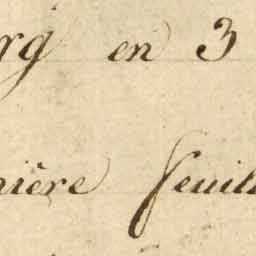 rg en 3
nière feuill